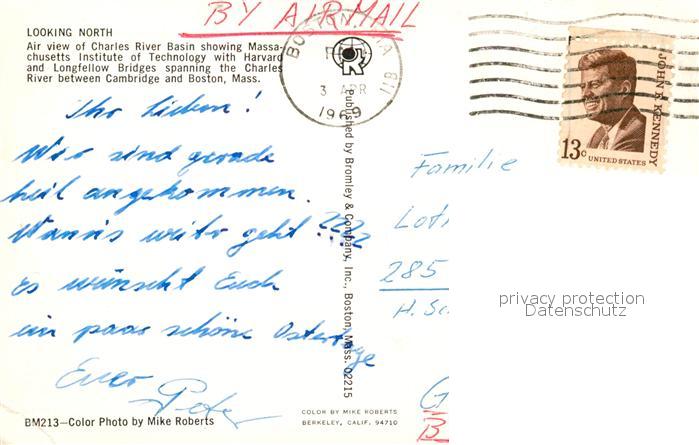 BY AIR MAIL
LOOKING NORTH
Air view of Charles River Basin showing Massa-
chusetts Institute of Technology with Harvard
and Longfellow Bridges spanning the Charles
River between Cambridge and Boston, Mass.
BOSTON, MA 118
3 APR
1969
JOHN F. KENNEDY
13c UNITED STATES
Ihr Lieben!
Wir sind gerade
heil angekommen.
Wann's weiter geht???
Es wünscht Euch
ein paar schöne Ostertage
Euer Peter
Published by Bromley & Company, Inc., Boston, Mass. 02215
Familie
285
H. Sc
privacy protection
Datenschutz
G
B
BM213—Color Photo by Mike Roberts
COLOR BY MIKE ROBERTS
BERKELEY, CALIF. 94710